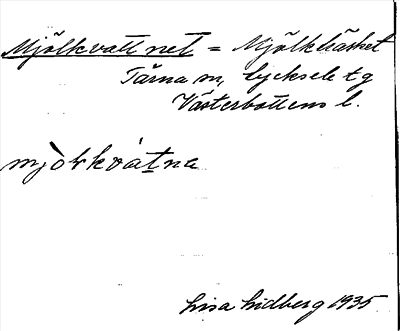 Mjölkvattnet = Mjölkbäcket
Tärna sn, Lycksele tg
Västerbottens l.
mjòlkvátna
Lisa Lidberg 1935